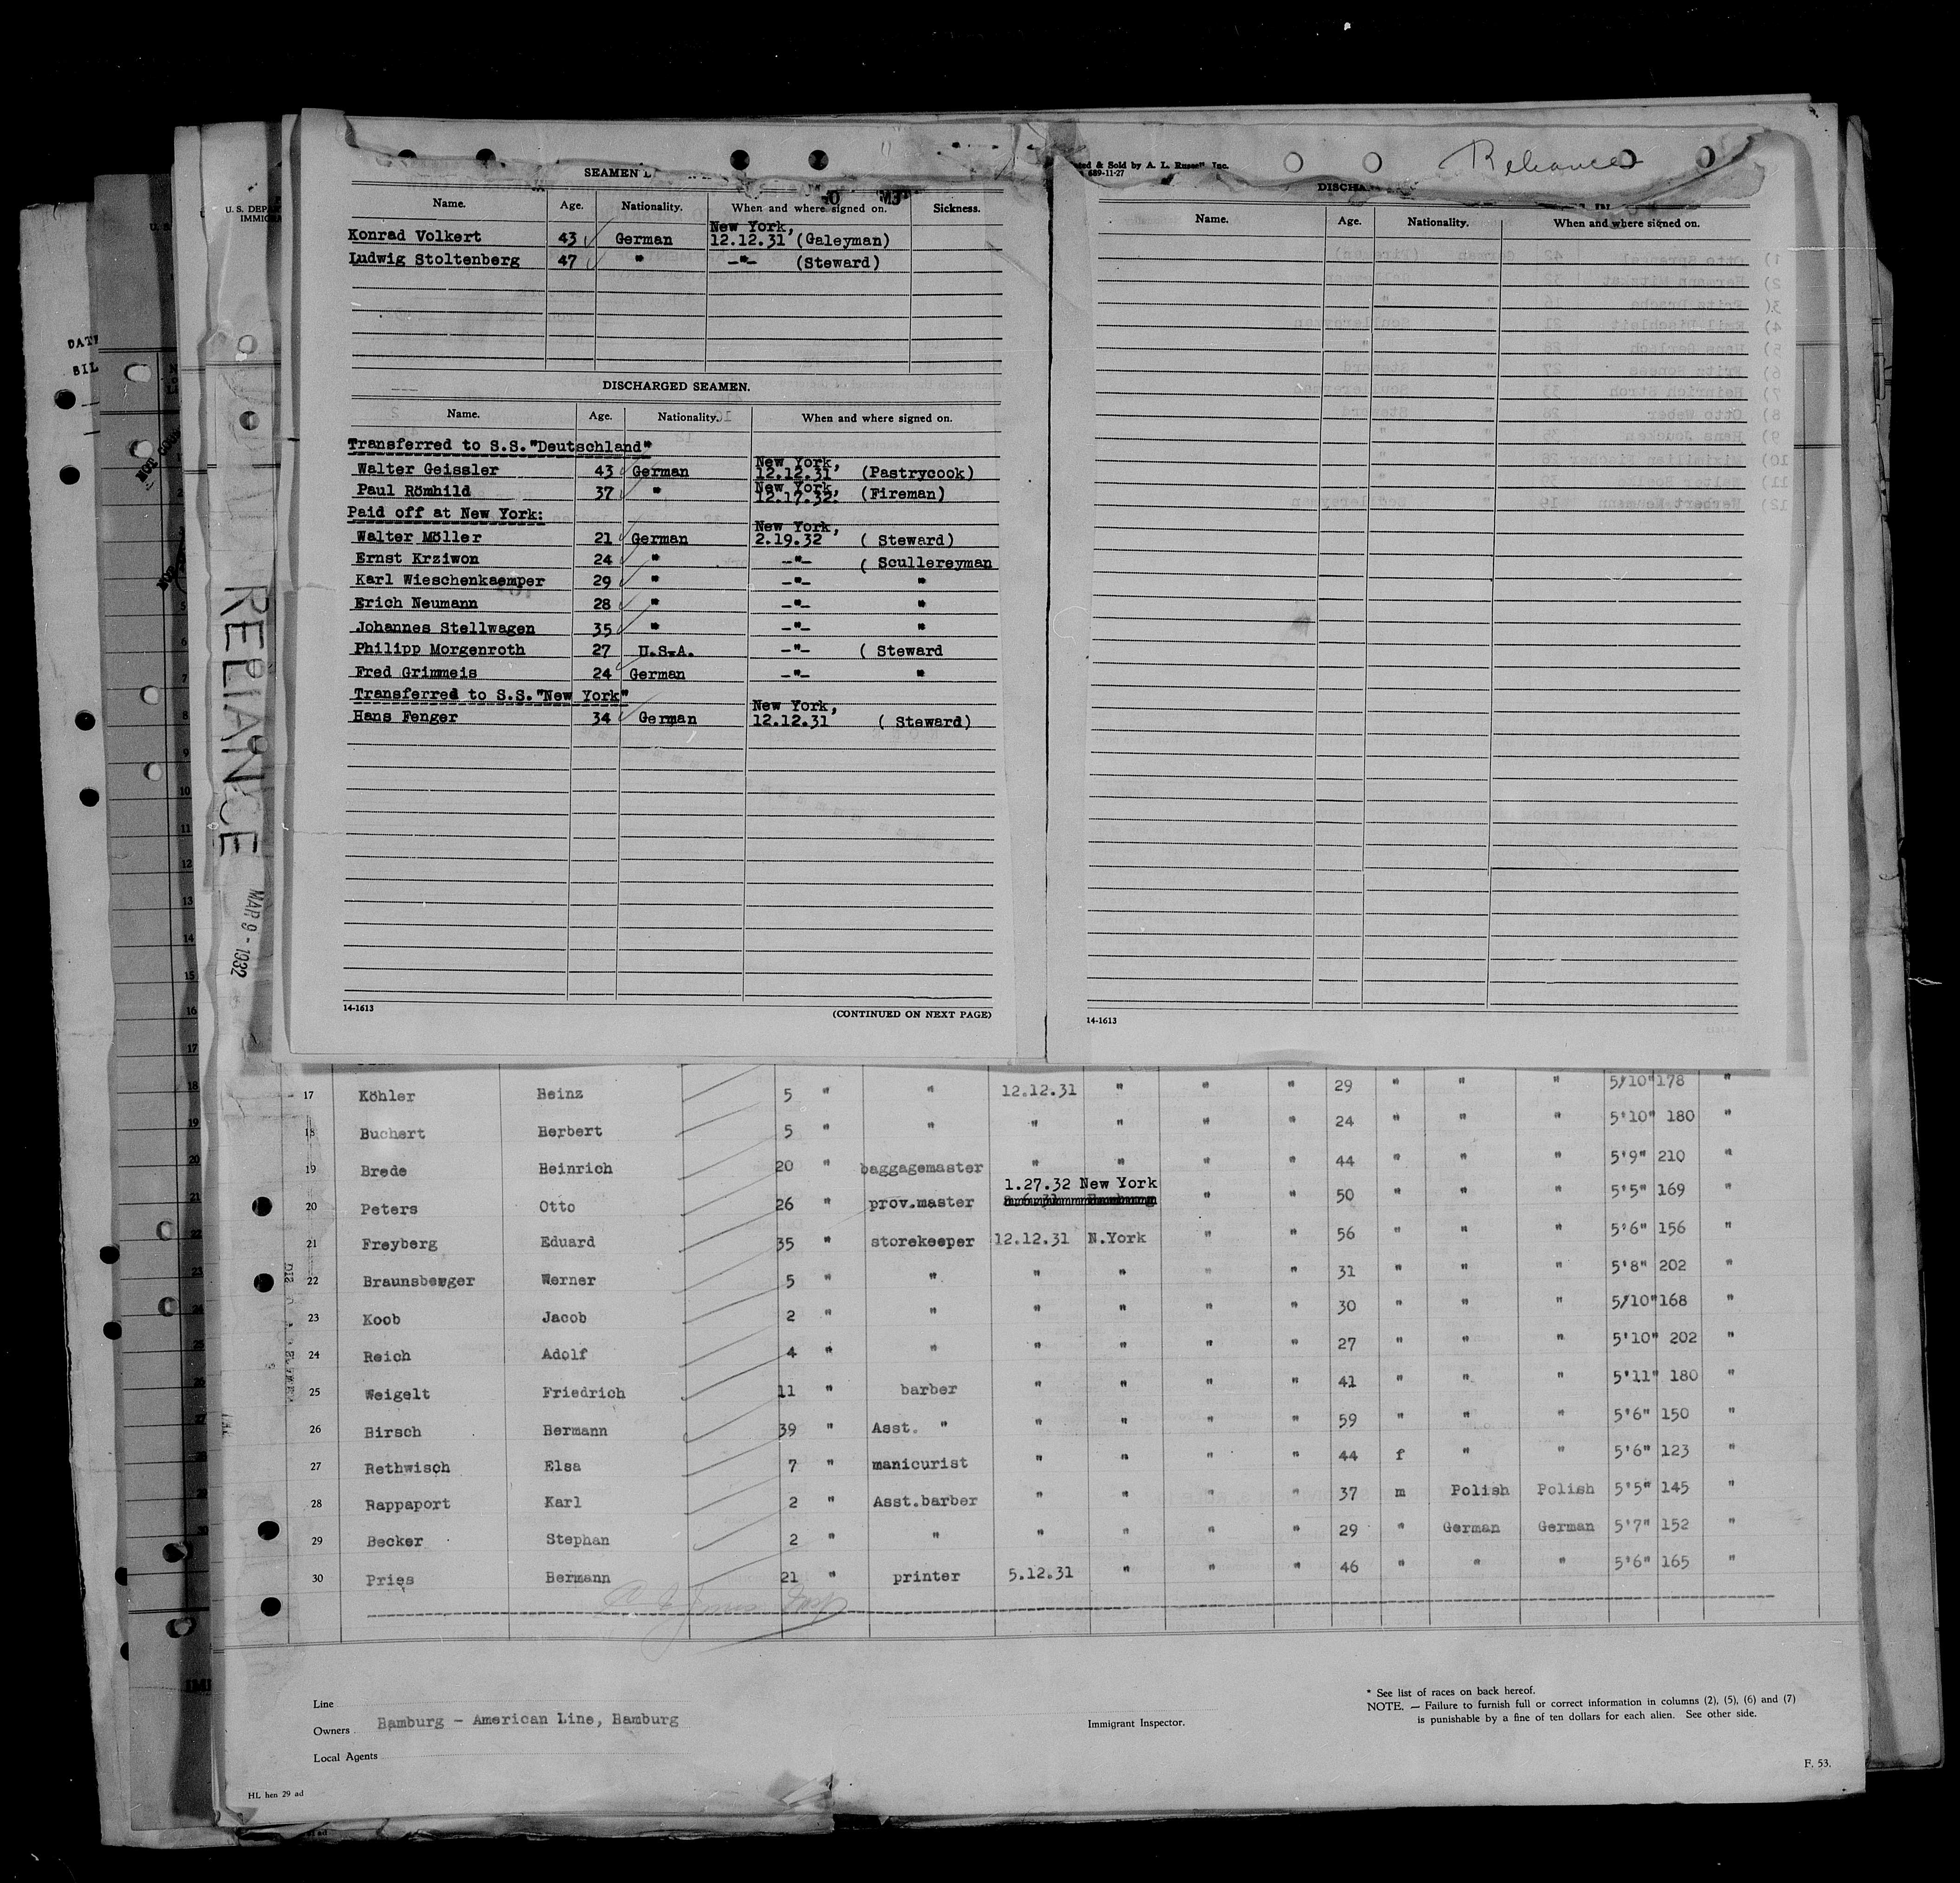 Reliance
ted & Sold by A. L. Russell Inc.
689-11-27
U. S. DEPA
IMMIGRA
DATE
RELIANCE
MAR 9 - 1932
SEAMEN
Name. Age. Nationality. When and where signed on. Sickness.
Konrad Volkert 43 German New York, 12.12.31 (Galeyman)
Ludwig Stoltenberg 47 " -"- (Steward)
DISCHARGED SEAMEN.
Name. Age. Nationality. When and where signed on.
Transferred to S.S."Deutschland"
Walter Geissler 43 German New York, 12.12.31 (Pastrycook)
Paul Römhild 37 " New York, 12.17.32. (Fireman)
Paid off at New York:
Walter Möller 21 German New York, 2.19.32 ( Steward)
Ernst Krziwon 24 " -"- ( Scullereyman
Karl Wieschenkaemper 29 " -"- "
Erich Neumann 28 " -"- "
Johannes Stellwagen 35 " -"- "
Philipp Morgenroth 27 U.S.A. -"- ( Steward
Fred Grimmeis 24 German -"- "
Transferred to S.S."New York"
Hans Fenger 34 German New York, 12.12.31 ( Steward)
14-1613 (CONTINUED ON NEXT PAGE)
DISCHA
Name. Age. Nationality. When and where signed on.
14-1613
17 Köhler Heinz 5 " " 12.12.31 " " " 29 " " " 5/10" 178 "
18 Buchert Herbert 5 " " " " " " 24 " " " 5'10" 180 "
19 Brede Heinrich 20 " baggagemaster " " " " 44 " " " 5'9" 210 "
20 Peters Otto 26 " prov.master 1.27.32 New York " " 50 " " " 5'5" 169 "
21 Freyberg Eduard 35 " storekeeper 12.12.31 N.York " " 56 " " " 5'6" 156 "
22 Braunsberger Werner 5 " " " " " " 31 " " " 5'8" 202 "
23 Koob Jacob 2 " " " " " " 30 " " " 5/10" 168 "
24 Reich Adolf 4 " " " " " " 27 " " " 5'10" 202 "
25 Weigelt Friedrich 11 " barber " " " " 41 " " " 5'11" 180 "
26 Hirsch Hermann 39 " Asst. " " " " " 59 " " " 5'6" 150 "
27 Rethwisch Elsa 7 " manicurist " " " " 44 f " " 5'6" 123 "
28 Rappaport Karl 2 " Asst.barber " " " " 37 m Polish Polish 5'5" 145 "
29 Becker Stephan 2 " " " " " " 29 " German German 5'7" 152 "
30 Pries Hermann 21 " printer 5.12.31 " " " 46 " " " 5'6" 165 "
Line
Owners Hamburg - American Line, Hamburg
Local Agents
Immigrant Inspector.
* See list of races on back hereof.
NOTE. — Failure to furnish full or correct information in columns (2), (5), (6) and (7)
is punishable by a fine of ten dollars for each alien. See other side.
F. 53.
HL hen 29 ad